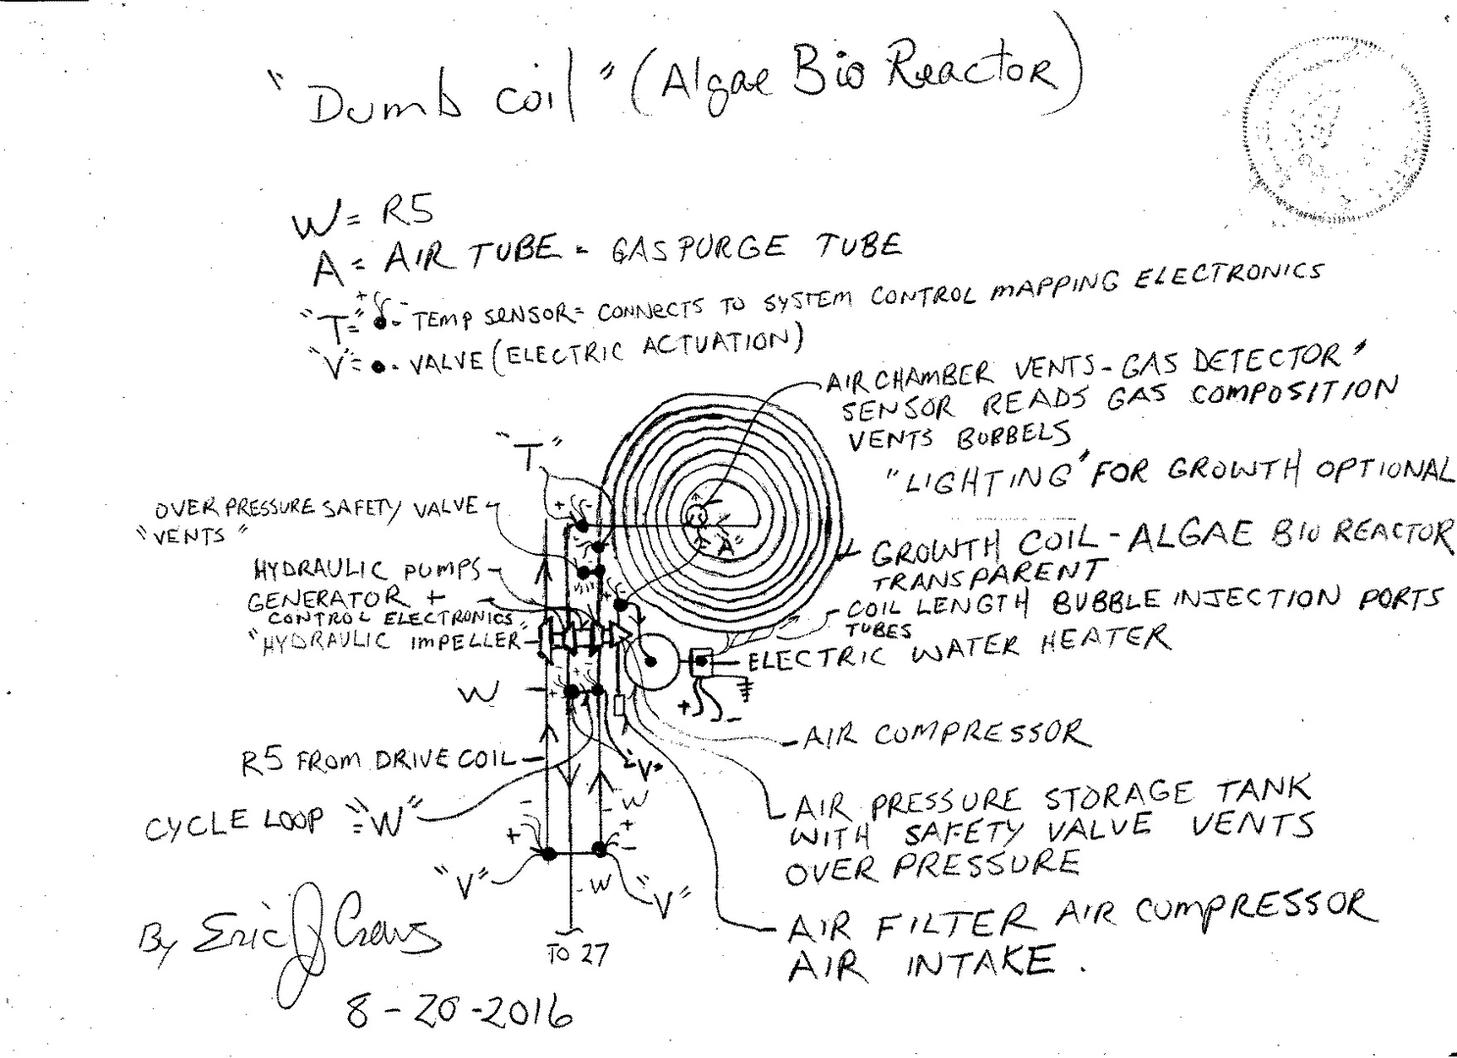 "Dumb coil" (Algae Bio Reactor)
W= R5
A= AIR TUBE - GAS PURGE TUBE
"T"= + - TEMP SENSOR= CONNECTS TO SYSTEM CONTROL MAPPING ELECTRONICS
"V"= - VALVE (ELECTRIC ACTUATION)
AIR CHAMBER VENTS - GAS DETECTOR"
SENSOR READS GAS COMPOSITION
VENTS BUBBELS
"LIGHTING" FOR GROWTH OPTIONAL
"T"
OVER PRESSURE SAFETY VALVE
"VENTS"
"A"
GROWTH COIL - ALGAE BIO REACTOR
TRANSPARENT
HYDRAULIC PUMPS
GENERATOR +
CONTROL ELECTRONICS
"HYDRAULIC IMPELLER"
COIL LENGTH BUBBLE INJECTION PORTS
TUBES
ELECTRIC WATER HEATER
W
+ -
AIR COMPRESSOR
R5 FROM DRIVE COIL
"V"
CYCLE LOOP = "W"
W
AIR PRESSURE STORAGE TANK
WITH SAFETY VALVE VENTS
OVER PRESSURE
"V"
W
"V"
AIR FILTER AIR COMPRESSOR
AIR INTAKE.
TO 27
By Eric J Craus
8-20-2016